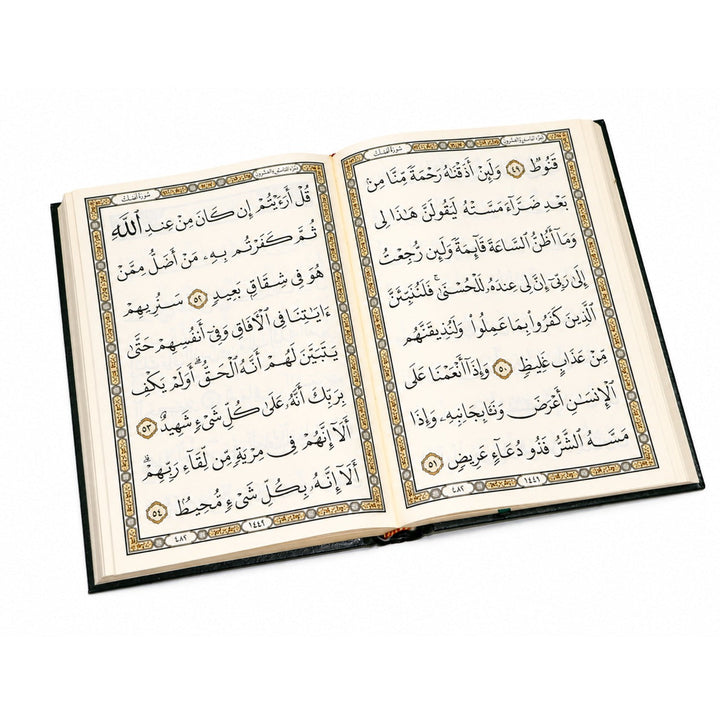 الجزء الخامس والعشرون
سورة فصلت
قَنُوطٌ ٤٩ وَلَئِنْ أَذَقْنَٰهُ رَحْمَةً مِّنَّا مِنۢ
بَعْدِ ضَرَّآءَ مَسَّتْهُ لَيَقُولَنَّ هَٰذَا لِى
وَمَآ أَظُنُّ ٱلسَّاعَةَ قَآئِمَةً وَلَئِن رُّجِعْتُ
إِلَىٰ رَبِّىٓ إِنَّ لِى عِندَهُۥ لَلْحُسْنَىٰ ۚ فَلَنُنَبِّئَنَّ
ٱلَّذِينَ كَفَرُوا۟ بِمَا عَمِلُوا۟ وَلَنُذِيقَنَّهُم
مِّنْ عَذَابٍ غَلِيظٍ ٥٠ وَإِذَآ أَنْعَمْنَا عَلَى
ٱلْإِنسَٰنِ أَعْرَضَ وَنَـَٔا بِجَانِبِهِۦ وَإِذَا
مَسَّهُ ٱلشَّرُّ فَذُو دُعَآءٍ عَرِيضٍ ٥١
١٤٤٩
٤٨٢
الجزء الخامس والعشرون
سورة فصلت
قُلْ أَرَءَيْتُمْ إِن كَانَ مِنْ عِندِ ٱللَّهِ
ثُمَّ كَفَرْتُم بِهِۦ مَنْ أَضَلُّ مِمَّنْ
هُوَ فِى شِقَاقٍۭ بَعِيدٍ ٥٢ سَنُرِيهِمْ
ءَايَٰتِنَا فِى ٱلْءَافَاقِ وَفِىٓ أَنفُسِهِمْ حَتَّىٰ
يَتَبَيَّنَ لَهُمْ أَنَّهُ ٱلْحَقُّ ۗ أَوَلَمْ يَكْفِ
بِرَبِّكَ أَنَّهُۥ عَلَىٰ كُلِّ شَىْءٍ شَهِيدٌ ٥٣
أَلَآ إِنَّهُمْ فِى مِرْيَةٍ مِّن لِّقَآءِ رَبِّهِمْ ۗ
أَلَآ إِنَّهُۥ بِكُلِّ شَىْءٍ مُّحِيطٌۢ ٥٤
١٤٤٩
٤٨٢